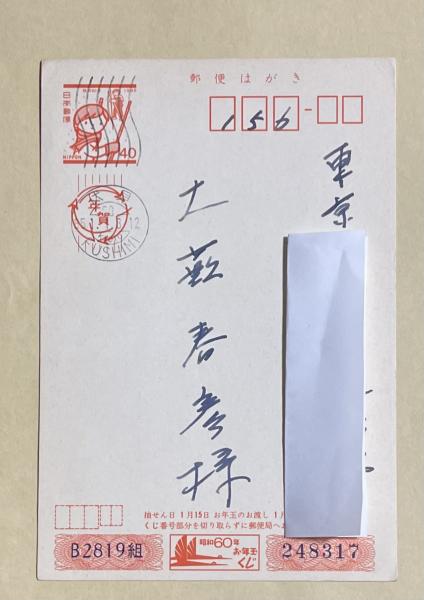 郵便はがき
日本郵便
NIPPON
40
156
年賀
FUSHIMI
東京
大藪春彦様
抽せん日1月15日 お年玉のお渡し 1
くじ番号部分を切り取らずに郵便局へお
B2819組
昭和60年
お年玉
くじ
248317